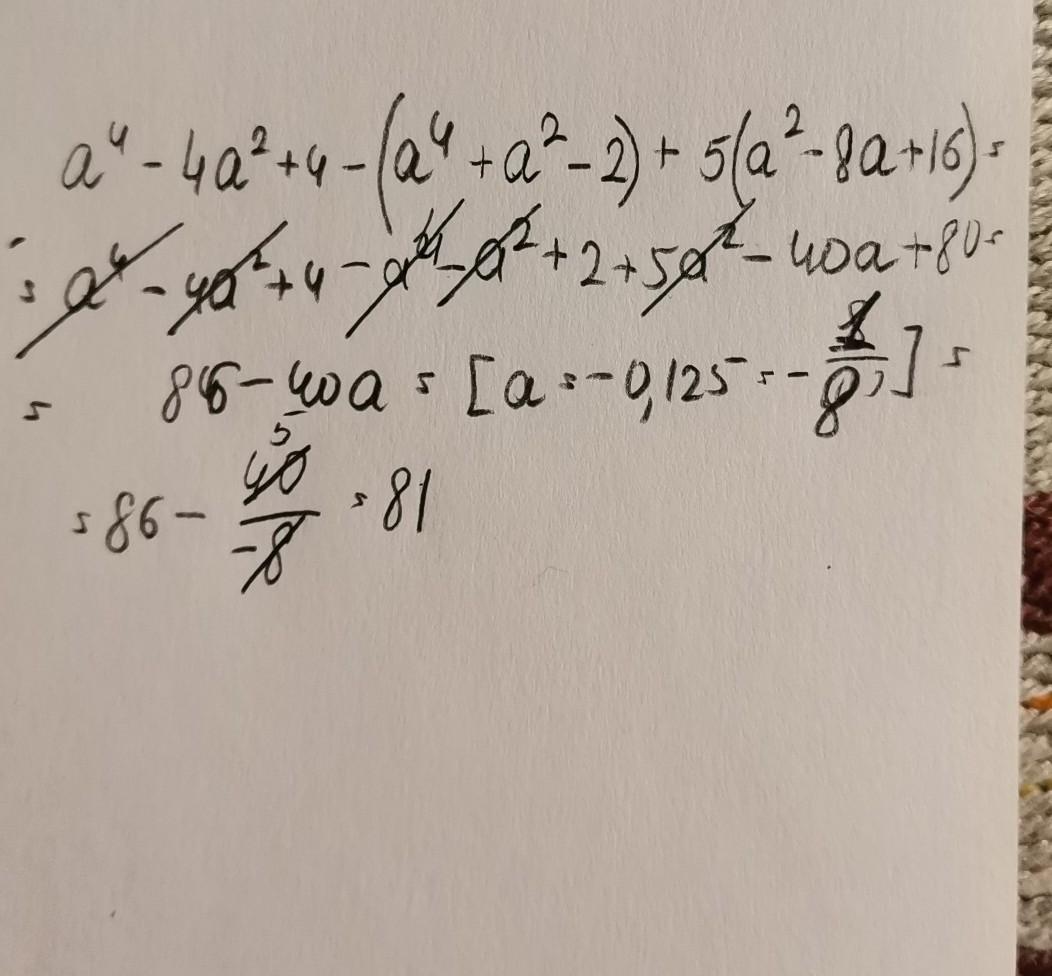 a⁴ - 4a² + 4 - (a⁴ + a² - 2) + 5(a² - 8a + 16) =
= a⁴ - 4a² + 4 - a⁴ - a² + 2 + 5a² - 40a + 80 =
= 86 - 40a = [a = -0,125 = - 1/8;] =
= 86 - 40/-8 = 81